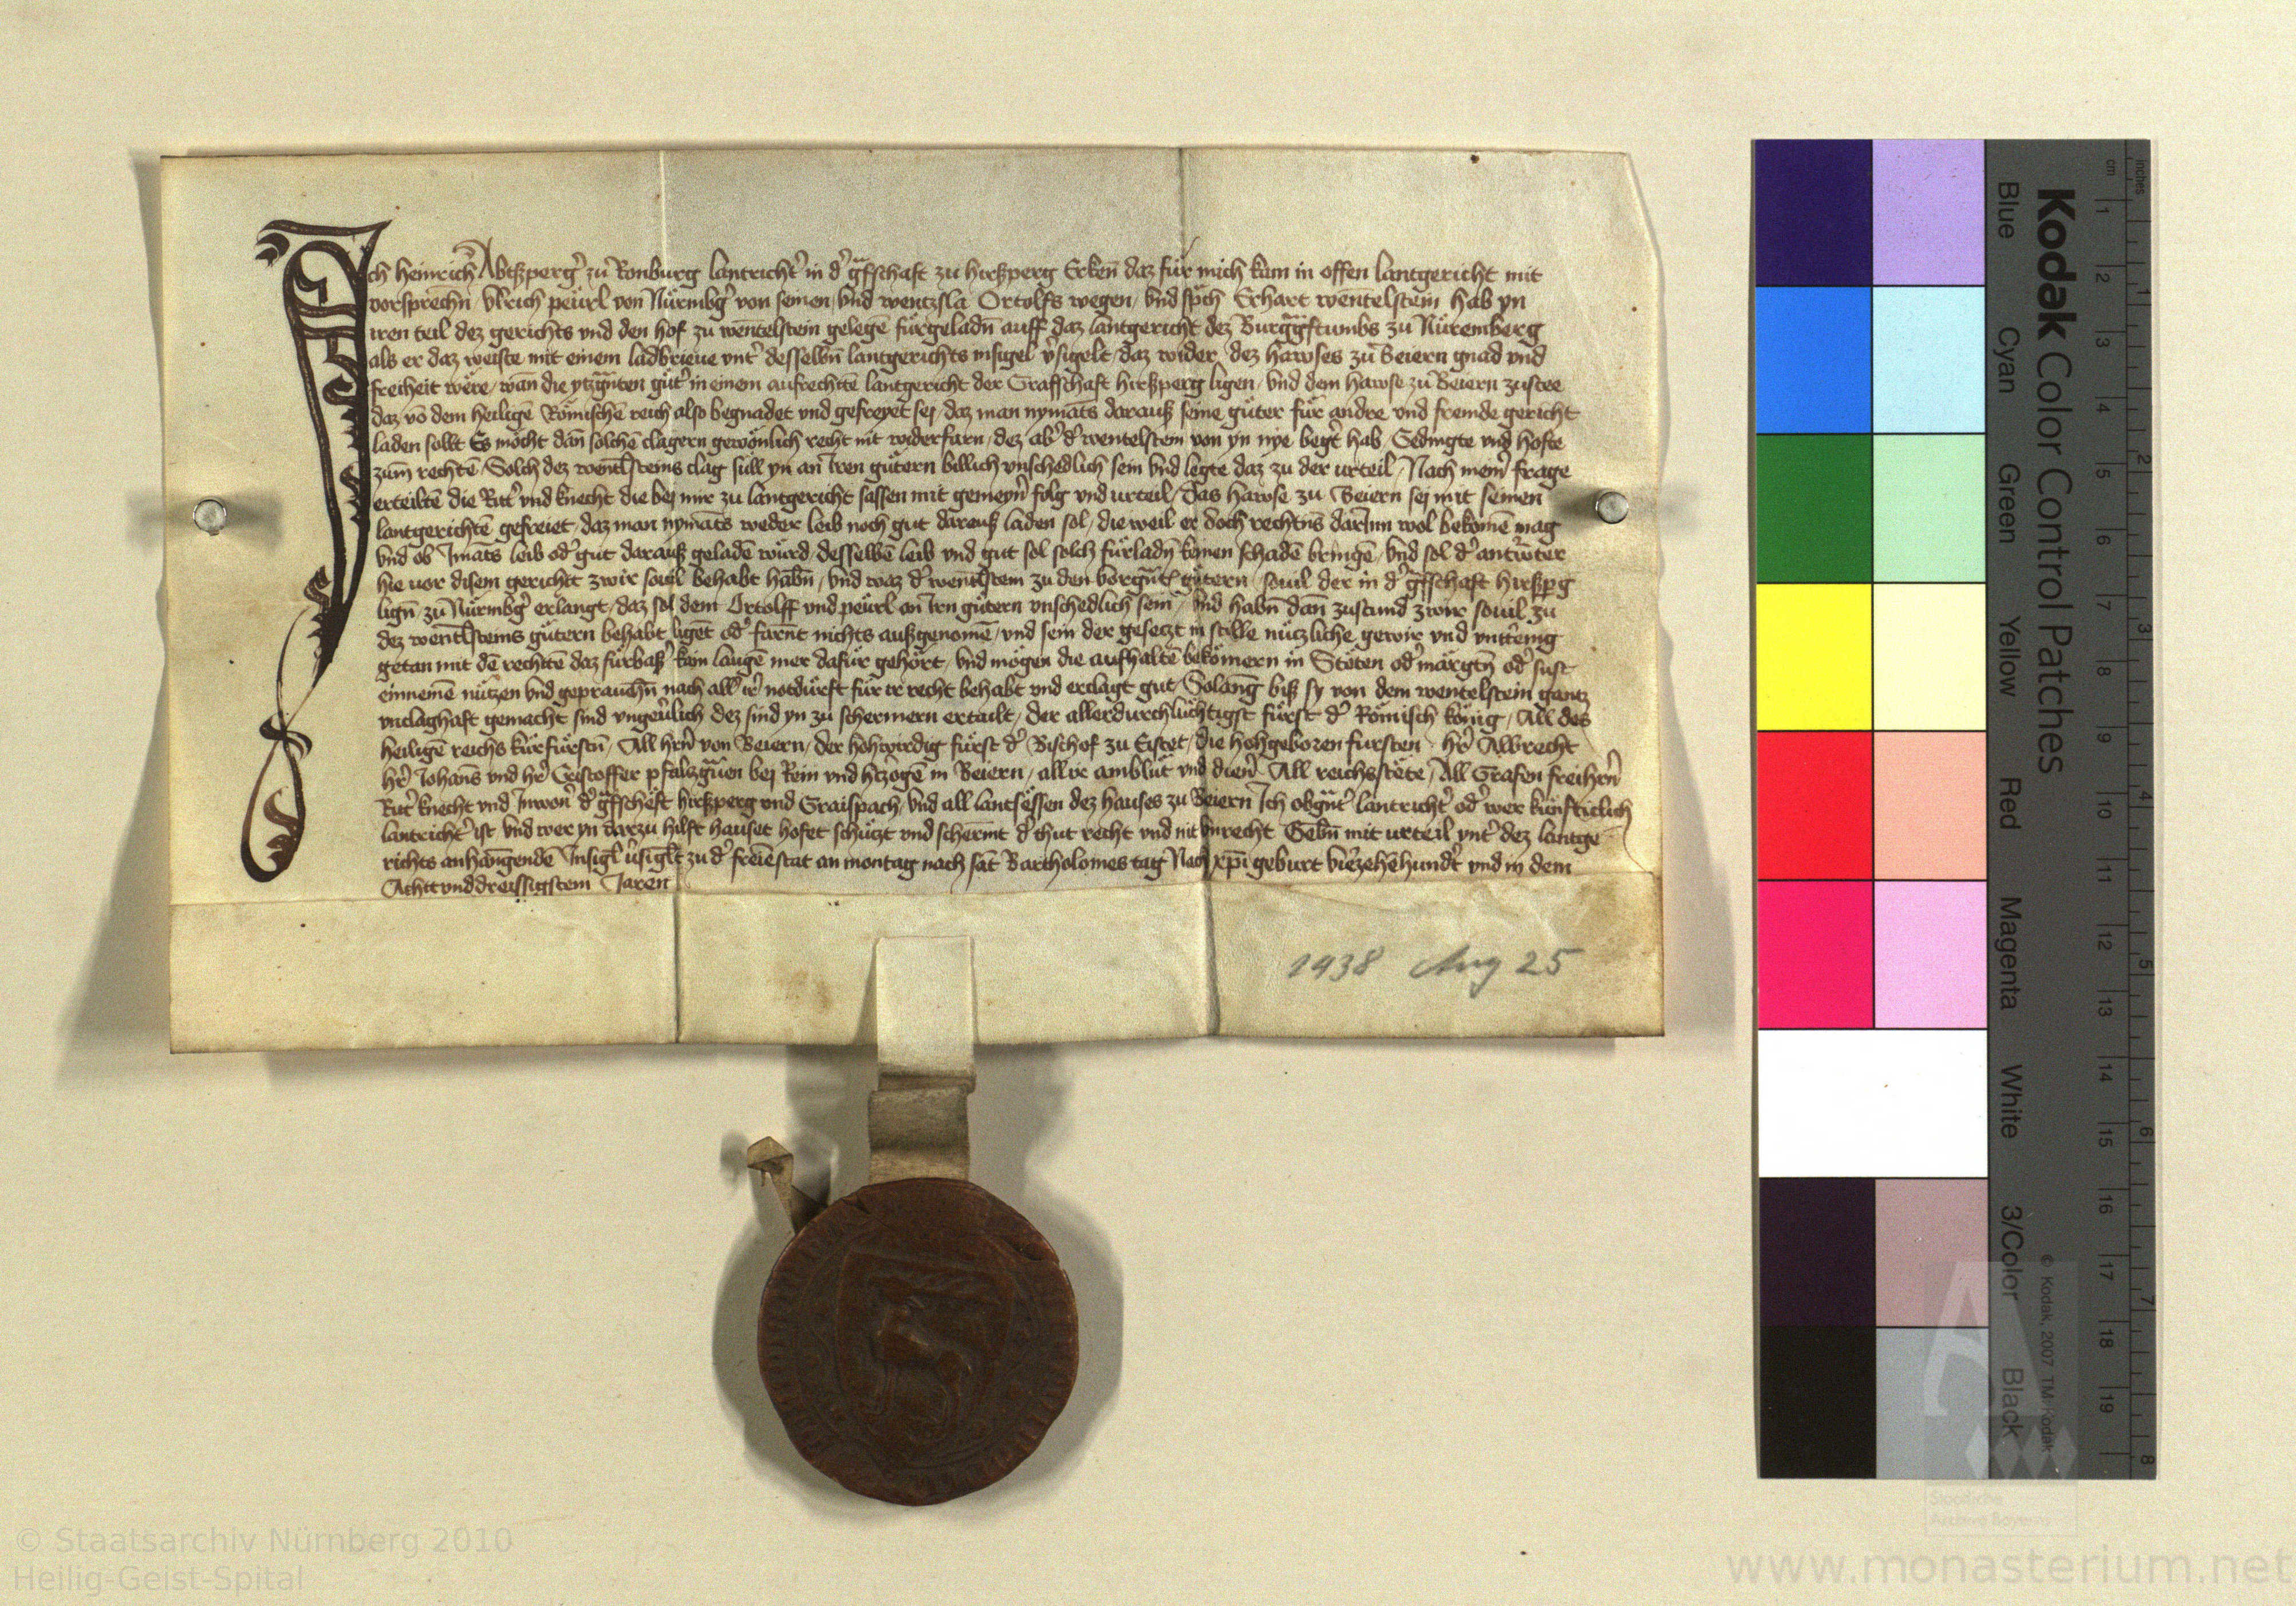 Ich heinrich Abtzperg̉ zu Ronburg lantricht̉ in d̉ gr̄fschaft zu hirßperg Erkeñ daz für mich kam in offen lantgericht mit
vorsprechn̄ vlrich peürl von Nürmbg̉ von seinen vnd wentzsla Ortolfs wegen / vnd sp̄ch Erhart wentelstein hab yn
iren teil dez gerichts vnd den hof zu wentelstein gelegē fürgeladn̄ auff daz lantgericht dez Burggr̄ftumbs zu Nüremberg
als er daz weiste mit einem ladbrieue vnt̉ desselbn̄ lantgerichts insigel v̉sigelt / daz wider dez hawses zu Beiern gnad vnd
freiheit wëre / wan̄ die ytzgn̄nten güt̉ in einem aufrechtē lantgericht der Grafschaft hirßperg ligen / vnd dem hawse zu Beiern zustee
daz võ dem heiligē Römischē reich also begnadet vnd gefreyet sej / daz man nymāts darauß seine güter für andre vnd fremde gericht
laden sollt Es möcht dan̄ solchē clagern gewönlich recht nit widerfarn / dez ab̉ d̉ wentelstein von yn nye beg̉t hab / Gedingte vnd hofte
zum̄ rechtē / Solch dez wentlsteins clag süll yn an iren gütern billich vnschedlich sein vnd legte daz zu der urteil / Nach mein̉ frage
erteiltē die Rit̉ vnd knecht die bej mir zu lantgericht sassen mit gemeyn̉ folg vnd urteil / Das hawse zu Beiern sej mit seinen
lantgerichtē gefreiet / daz man nymāts weder leib noch gut darauß laden sol / die weil er doch rechtn̄s darinn wol bekomē mag
vnd ob ymāts leib od̉ gut darauß geladē würd / desselbē leib vnd gut sol solch fürladn̄ keinen schadē bringē / vnd sol d̉ antwͦter
hie vor disem gerichtt zwir souil behabt habn̄ / vnd waz d̉ wentlstein zu den vorgn̄tē gütern souil der in d̉ gr̄fschaft hirßpg
lign̄ zu Nürmbg̉ erlangt / daz sol dem Ortolff vnd peürl an irn gütern vnschedlich sein / vnd habn̄ dan̄ zustund zwir souil zu
dez wentlsteins gütern behabt ligēt od̉ farn̄t nichts außgenomē / vnd sein der gesetzt in stille nützliche gewir vnd
getan mit dē rechtē daz fürbaß̉ kain laugē mer dafür gehört / vnd mögen die aufhaltē bekömern in Stëten od̉ märgtn̄ od̉ sust
einnemē nützen vnd geprauchn̄ nach all̉ ir̉ notdürft für ir recht behabt vnd erclagt gut / Solanḡ biß sy von dem wentelstein gantz
vnclaghaft gemacht sind vngeu̔lich dez sind yn zu schermern ertailt / der allerdurchlüchtigst fürst d̉ Römisch könig / All des
heiligē reichs kürfürstn̄ / All hrn̄ von Beiern / der hohwirdig fürst d̉ Bischof zu Eistet / die hohgeboren fursten hr̉ Albrecht
hr̉ Johan̄s vnd hr̉ Cristoffer pfaltzgr̄uen bej Rein vnd htzogē in Beiern / all ir amblüt vnd dien̉ All reichsstëte / All Grafen freihrn̄
Rit̉ knecht vnd Inwon̉ d̉ gr̄fschëft hirßperg vnd Graispach / vnd all lantsëssen dez hauses zu Beiern Ich obgn̄t̉ lantricht̉ od̉ wer künfticlich
lantricht̉ ist vnd wer yn darzu hilft hauset hofet schützt vnd schermt d̉ thut recht vnd nit vnrecht Gebn̄ mit urteil vnt̉ dez lantge
richts anhangendē Insigl̄ v̉sigl̄t zu d̉ freiēstat an montag nach sāt Bartholomes tag Nach xp̄i geburt vierzehēhund̉t vnd in dem
Achttvnddreissigstem Jaren
1438 Aug 25
Kodak Color Control Patches
Blue Cyan Green Yellow Red Magenta White 3/Color Black
© Kodak, 2007 TM: Kodak
inches 1 2 3 4 5 6 7 8
cm 1 2 3 4 5 6 7 8 9 10 11 12 13 14 15 16 17 18 19
Staatliche
Archive Bayerns
© Staatsarchiv Nürnberg 2010
Heilig-Geist-Spital
www.monasterium.net